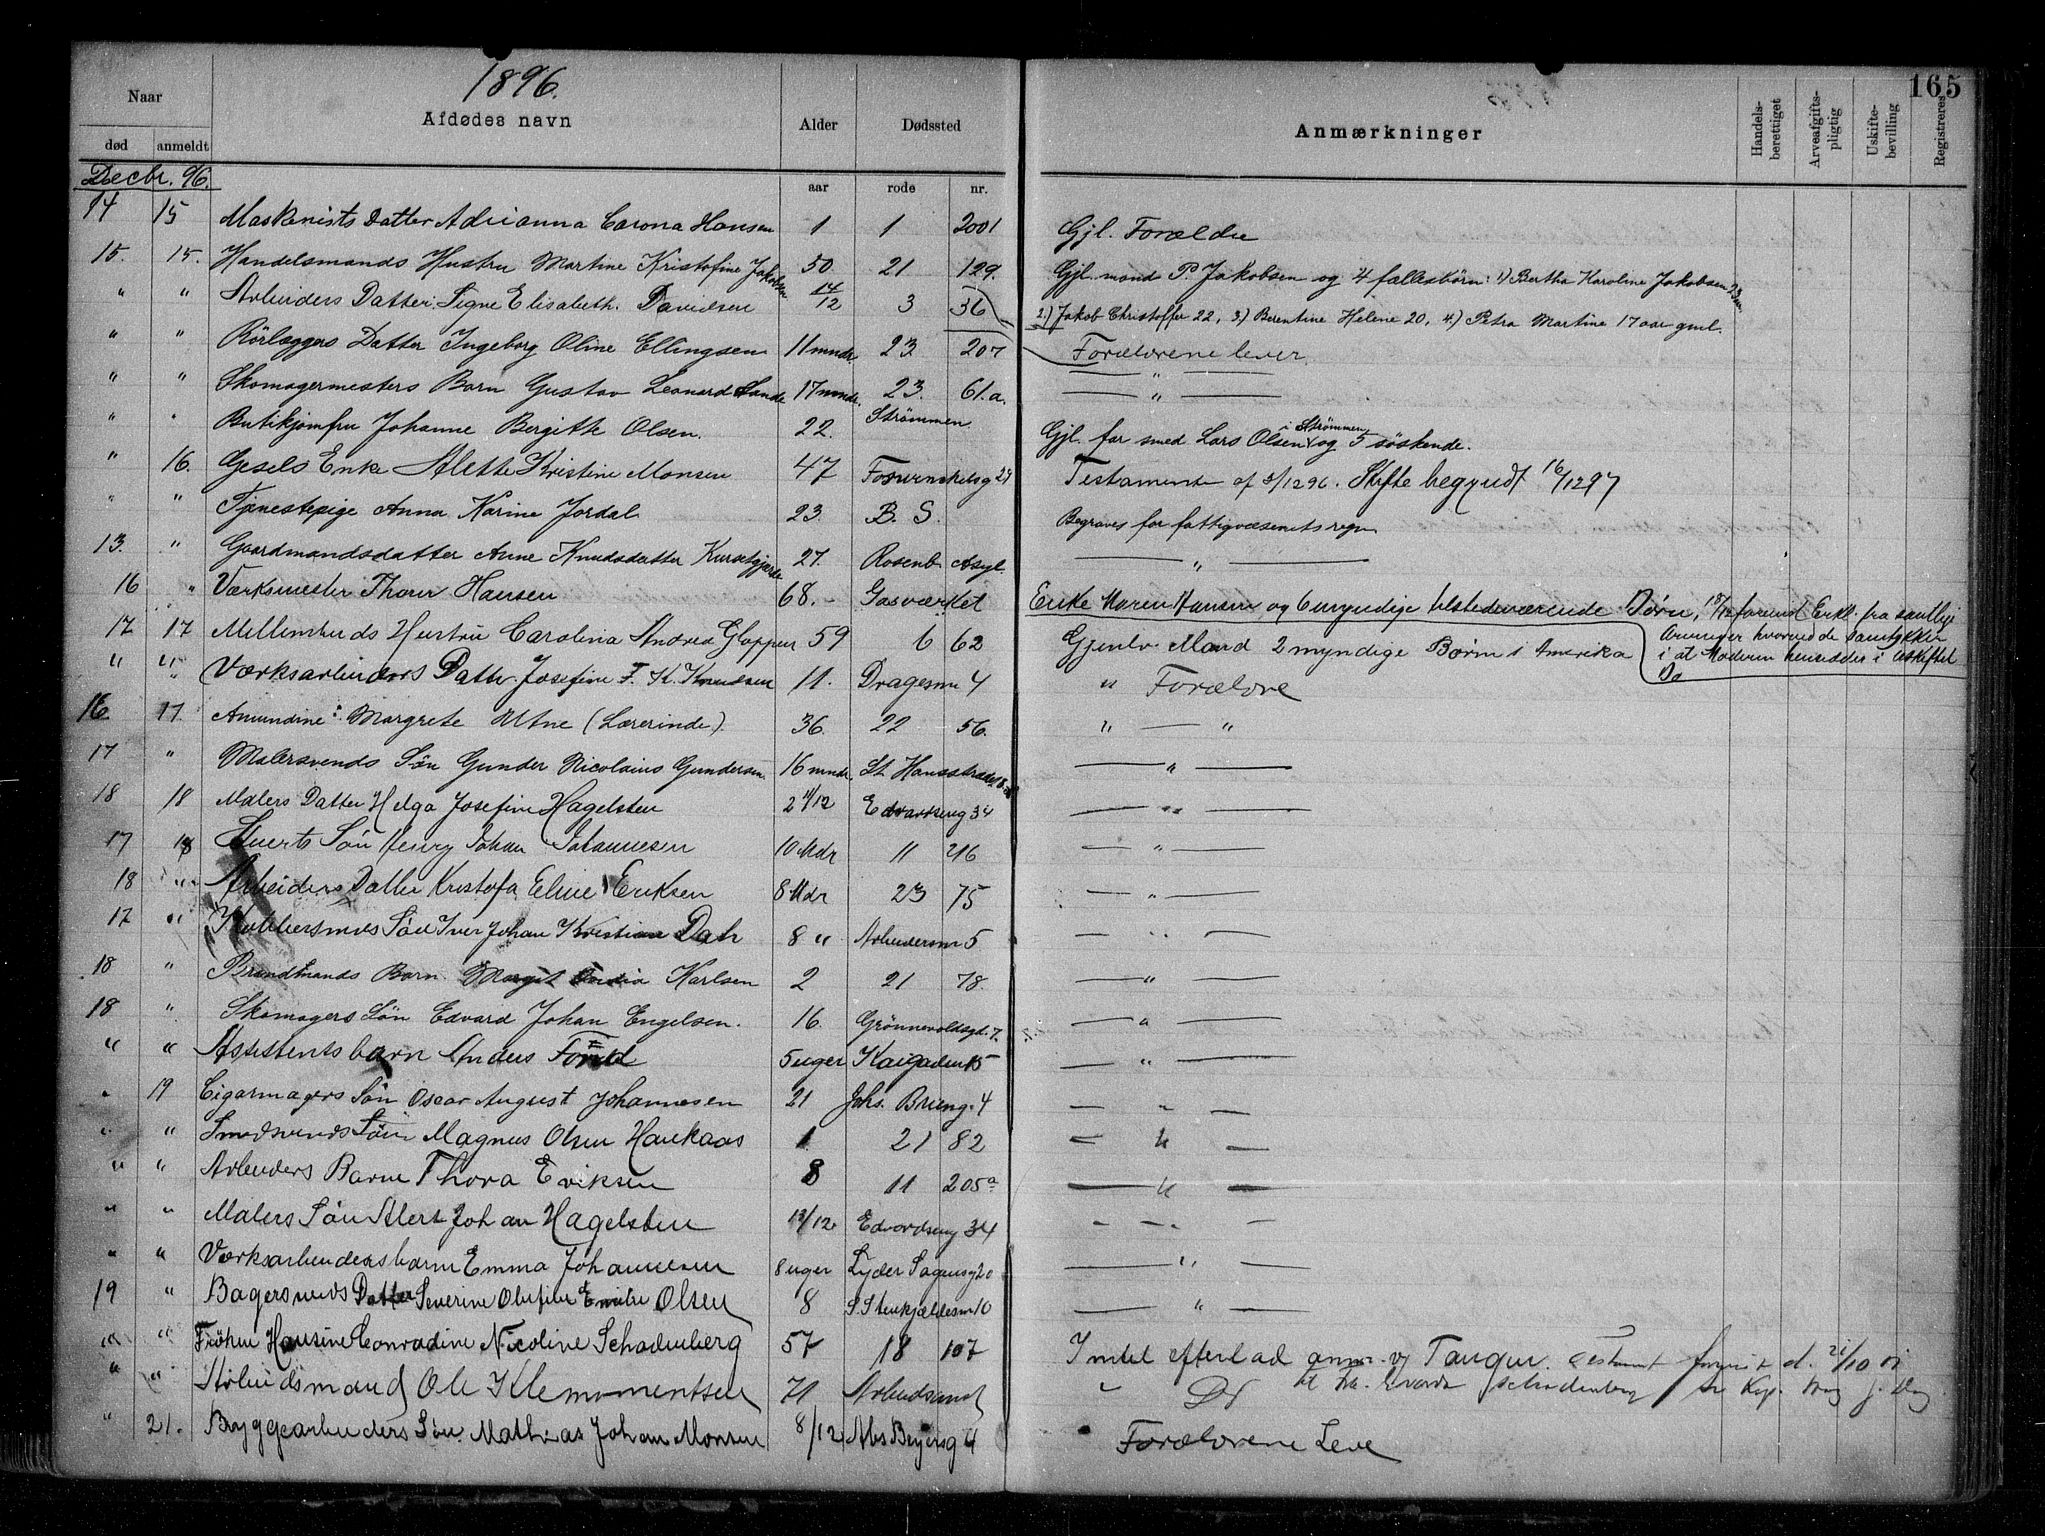 1896.
165
Naar
Afdødes navn
Alder
Dødssted
Anmærkninger
Handels-berettiget
Arveafgifts-pligtig
Uskifte-bevilling
Registreres
død anmeldt
aar rode nr.
Decbr. 96.
14 15 Maskinists Datter Adrianna Carona Hansen 1 1 2001 Gjl. Forældre
15. 15. Handelsmands Hustru Martine Kristofine Jakobsen 50 21 129. Gjl. mand P. Jakobsen og 4 fællesbörn: 1) Bertha Karoline Jakobsen 23
" " Arbeiders Datter Signe Elisabeth Davidsen 14/12 3 36 2.) Jakob Christoffer 22, 3.) Berentine Helene 20, 4.) Petra Martine 17 aar gml.
" " Rörlæggers Datter Ingeborg Oline Ellingsen 11 mndr. 23 207 Forældrene lever
" " Skomagermesters Barn Gustav Leonard Sande 17 mndr. 23. 61.a. — " —
" " Butikjomfru Johanne Bergitte Olsen. 22. Strömmen Gjl. far smed Lars Olsen i Strömmen og 5 söskende.
" 16. Gesels Enke Alette Kristine Monsen 47 24 Testamente af 8/12 96. Skifte begyndt 16/12 97
" " Tjenestepige Anna Karine Jordal 23. B. S. Begraves for fattigvæsenets regn
13. " Gaardmandsdatter Anne Knudsdatter 27. Rosenb. Asyl. — " —
16 " Værksmester Thour Hansen 68. Gasværket Enke Maren Hansen og 6 myndige tilstedeværende Børn, 18/12 Erkl. fra samtlige
Arvinger hvorved de samtykker
i at Moderen hensidder i Uskiftet
Bo
17 17 Hustru Carolina Andrea Gloppen 59 6 62 Gjenlv. Mand 2 myndige Børn i Amerika
" " Værksarbeiders Datter Josefine F. K. Knudsen 11. Dragesm 4 " Forældre
16 17. Amundine Margrete Utne (Lærerinde) 36. 22 56. " — "
17 " Malersvends Sön Gunder Nicolaius Gundersen 16 mndr. St. Hansstrædet — " —
18 18 Malers Datter Helga Josefine Hagelsten 2 11/12 Edvardseng 34 — " —
17 18 Sön Henry Johan Johannesen 10 Mdr 11 216 — " —
18 " Arbeiders Datter Kristofa Eline Eriksen 8 Mdr 23 75 — " —
17 " Kobbersmeds Sön Iver Johan Kristian Dahl 8 " Arbeidersm 5 — " —
18 " Brandmands Barn Margit Karlsen 2 21 78. — " —
18 " Skomagers Sön Edvard Johan Engelsen. 16. Grönnevoldsgd. 7. — " —
" " Assistents barn Anders 5 uger Kaigaden 15 — " —
" 19 Cigarmagers Sön Oscar August Johannesen 21 Johs. Brueng. 4 — " —
" " Smedsvends Sön Magnus Olsen Haukaas 1. 21 82 — " —
" " Arbeiders Barn Thora Eriksen 8 11 205a — " —
" " Malers Sön Alert Johan Hagelsten 11/12 Edvardseng 34 — " —
" " Værksarbeiders barn Emma Johannesen 8 uger Lyder Sagensg 20 — " —
19 " Bagersvends Datter Severine Olufine Emilie Olsen 8 S. Stenkjældesm 10 — " —
" " Fröken Hansine Conradine Nicoline Schadenberg 57 18 107 Intet efterlad anm. v/ Tanger. Testament d. 21/10 01
" " Arbeidsmand Ole Klemmentsen 71 Arbeidsanst " Do
" 21. Byggearbeiders Sön Mathias Johan Monsen 8/12 Abs Beyersg 4 Forældrene Leve